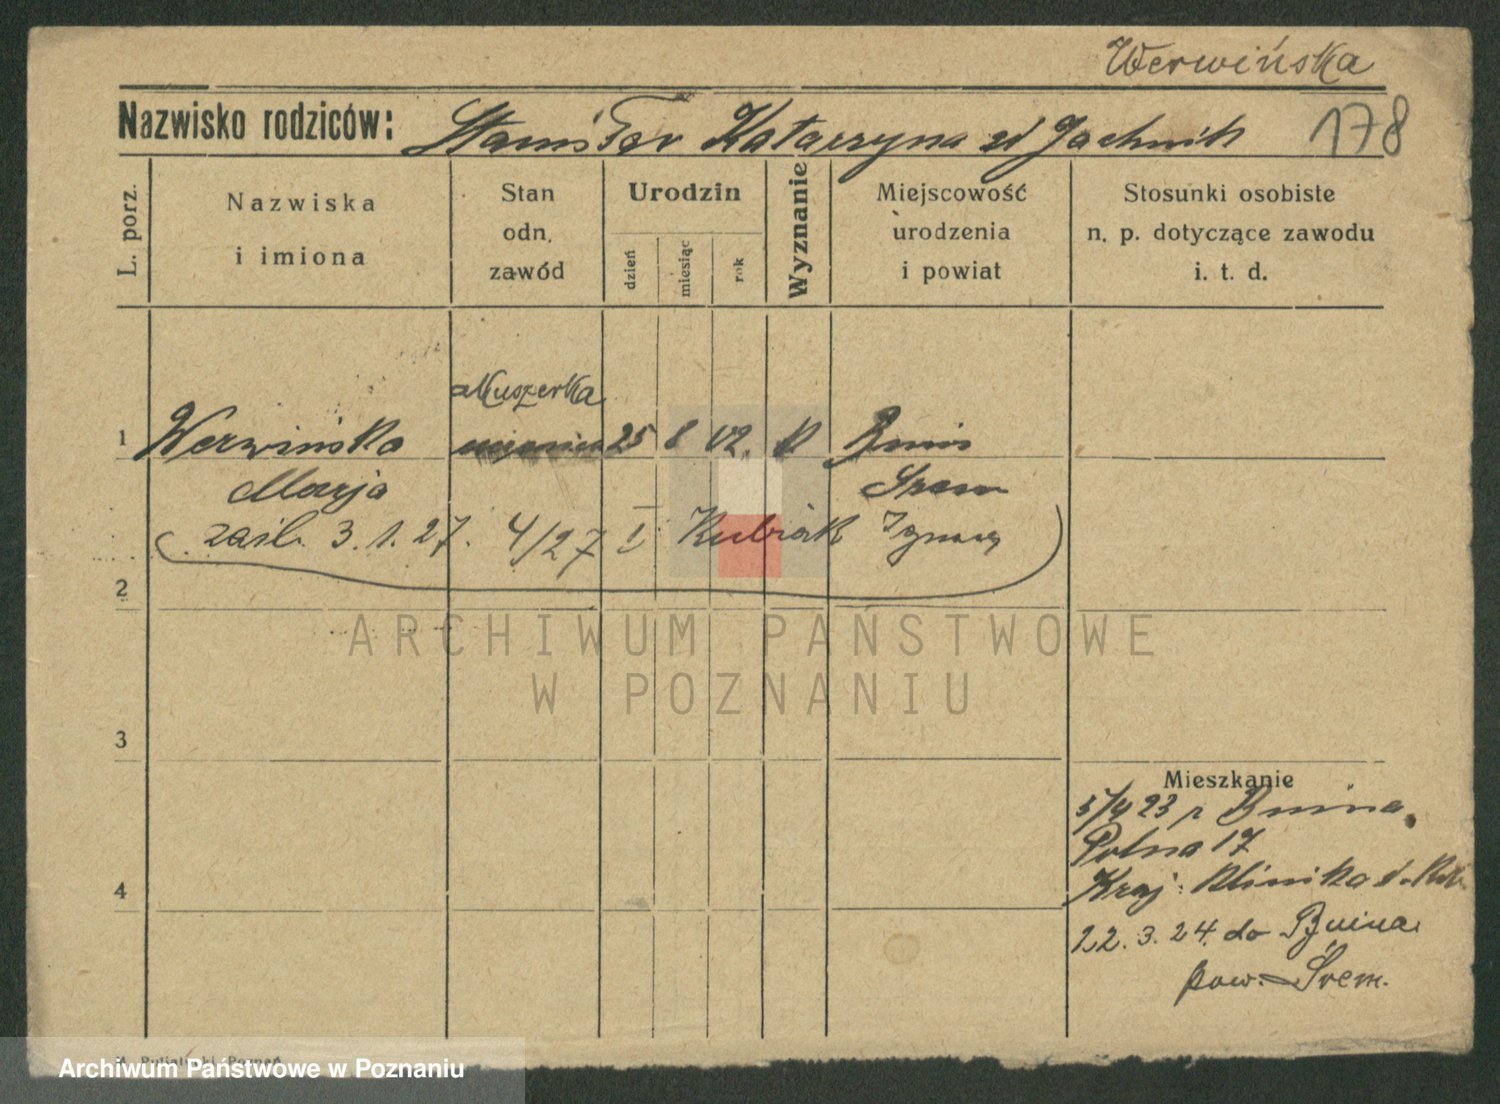 Werwińska
Nazwisko rodziców: Stanisław Katarzyna zd Jachnik 178
L. porz.
Nazwiska
i imiona
Stan
odn.
zawód
Urodzin
dzień
miesiąc
rok
Wyznanie
Miejscowość
urodzenia
i powiat
Stosunki osobiste
n. p. dotyczące zawodu
i. t. d.
akuszerka
1 Werwińska 25 8 02. k Bnin
Marja Śrem
zaśl. 3.1.27. 4/27 I Kubiak Ignacy
2
ARCHIWUM PAŃSTWOWE
W POZNANIU
3
Mieszkanie
5/4 23 z Bnina
Polna 17
4
Kraj. Klinika
22.3.24. do Bnina
pow. Śrem.
Poznań
Archiwum Państwowe w Poznaniu